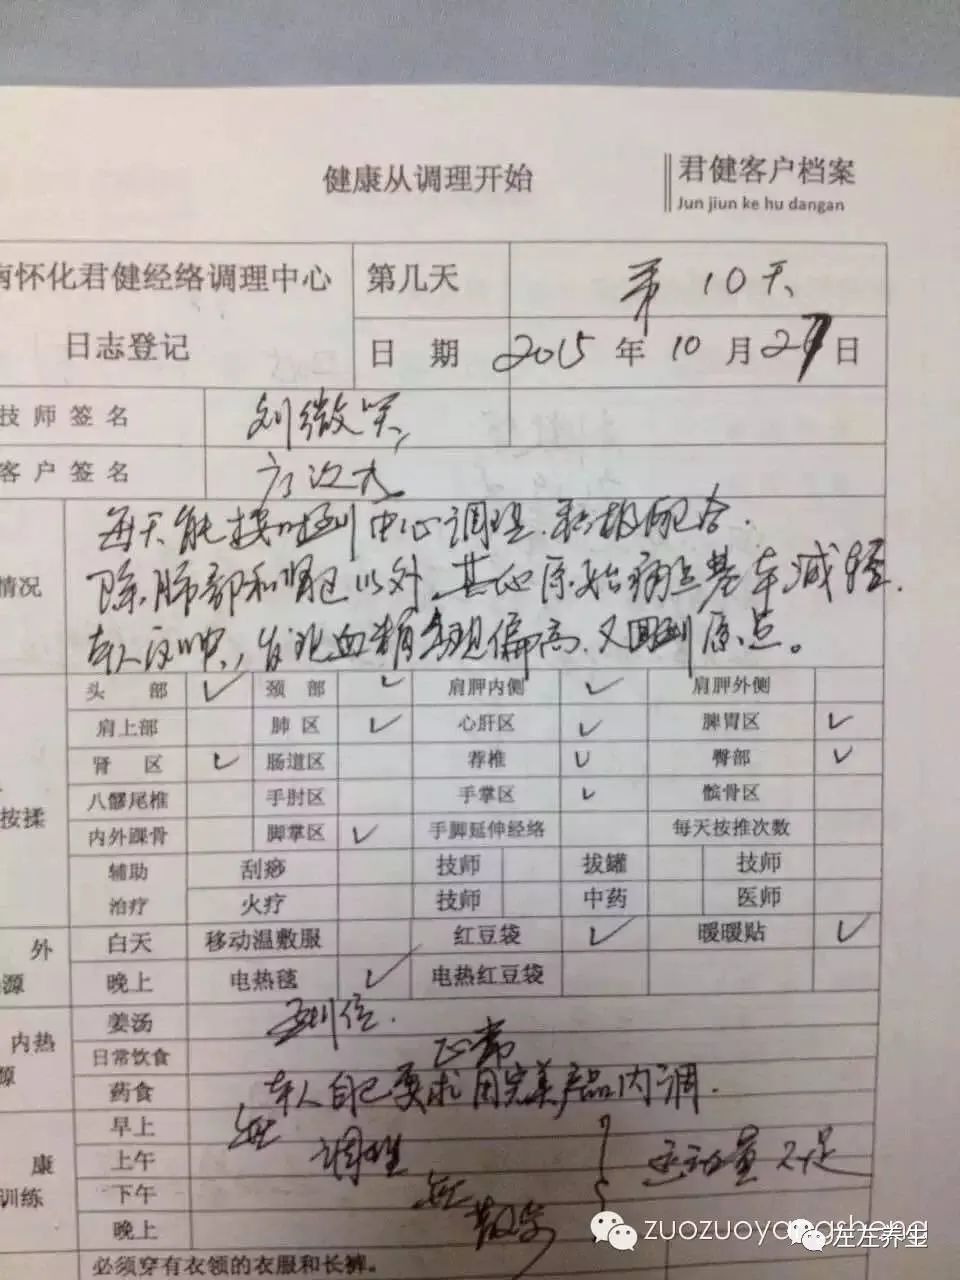 健康从调理开始
君健客户档案
Jun jiun ke hu dangan
怀化君健经络调理中心
日志登记
第几天 第10天
日 期 2015年10月27日
技师签名 刘微笑
客户签名
情况
每天能按时到中心调理.积极配合.
除肺部和肾区以外,其他原始病点基本减轻.
本人反映,发现血糖 偏高.又回到原点。
头 部 ✓ 颈 部 ✓ 肩胛内侧 ✓ 肩胛外侧
肩上部 肺 区 ✓ 心肝区 ✓ 脾胃区 ✓
肾 区 ✓ 肠道区 荐椎 ✓ 臀部 ✓
按揉 八髎尾椎 手肘区 手掌区 ✓ 髌骨区
内外踝骨 脚掌区 ✓ 手脚延伸经络 每天按推次数
辅助 刮痧 技师 拔罐 技师
治疗 火疗 技师 中药 医师
外 白天 移动温敷服 红豆袋 ✓ 暖暖贴 ✓
源 晚上 电热毯 ✓ 电热红豆袋
姜汤 到位.
内热 日常饮食 正常
源 药食 本人自己要求用完美产品内调.
早上 无
康 上午 调理 运动量不足
训练 下午 无
晚上 散步
必须穿有衣领的衣服和长裤。
zuozuoyangsheng
左左养生